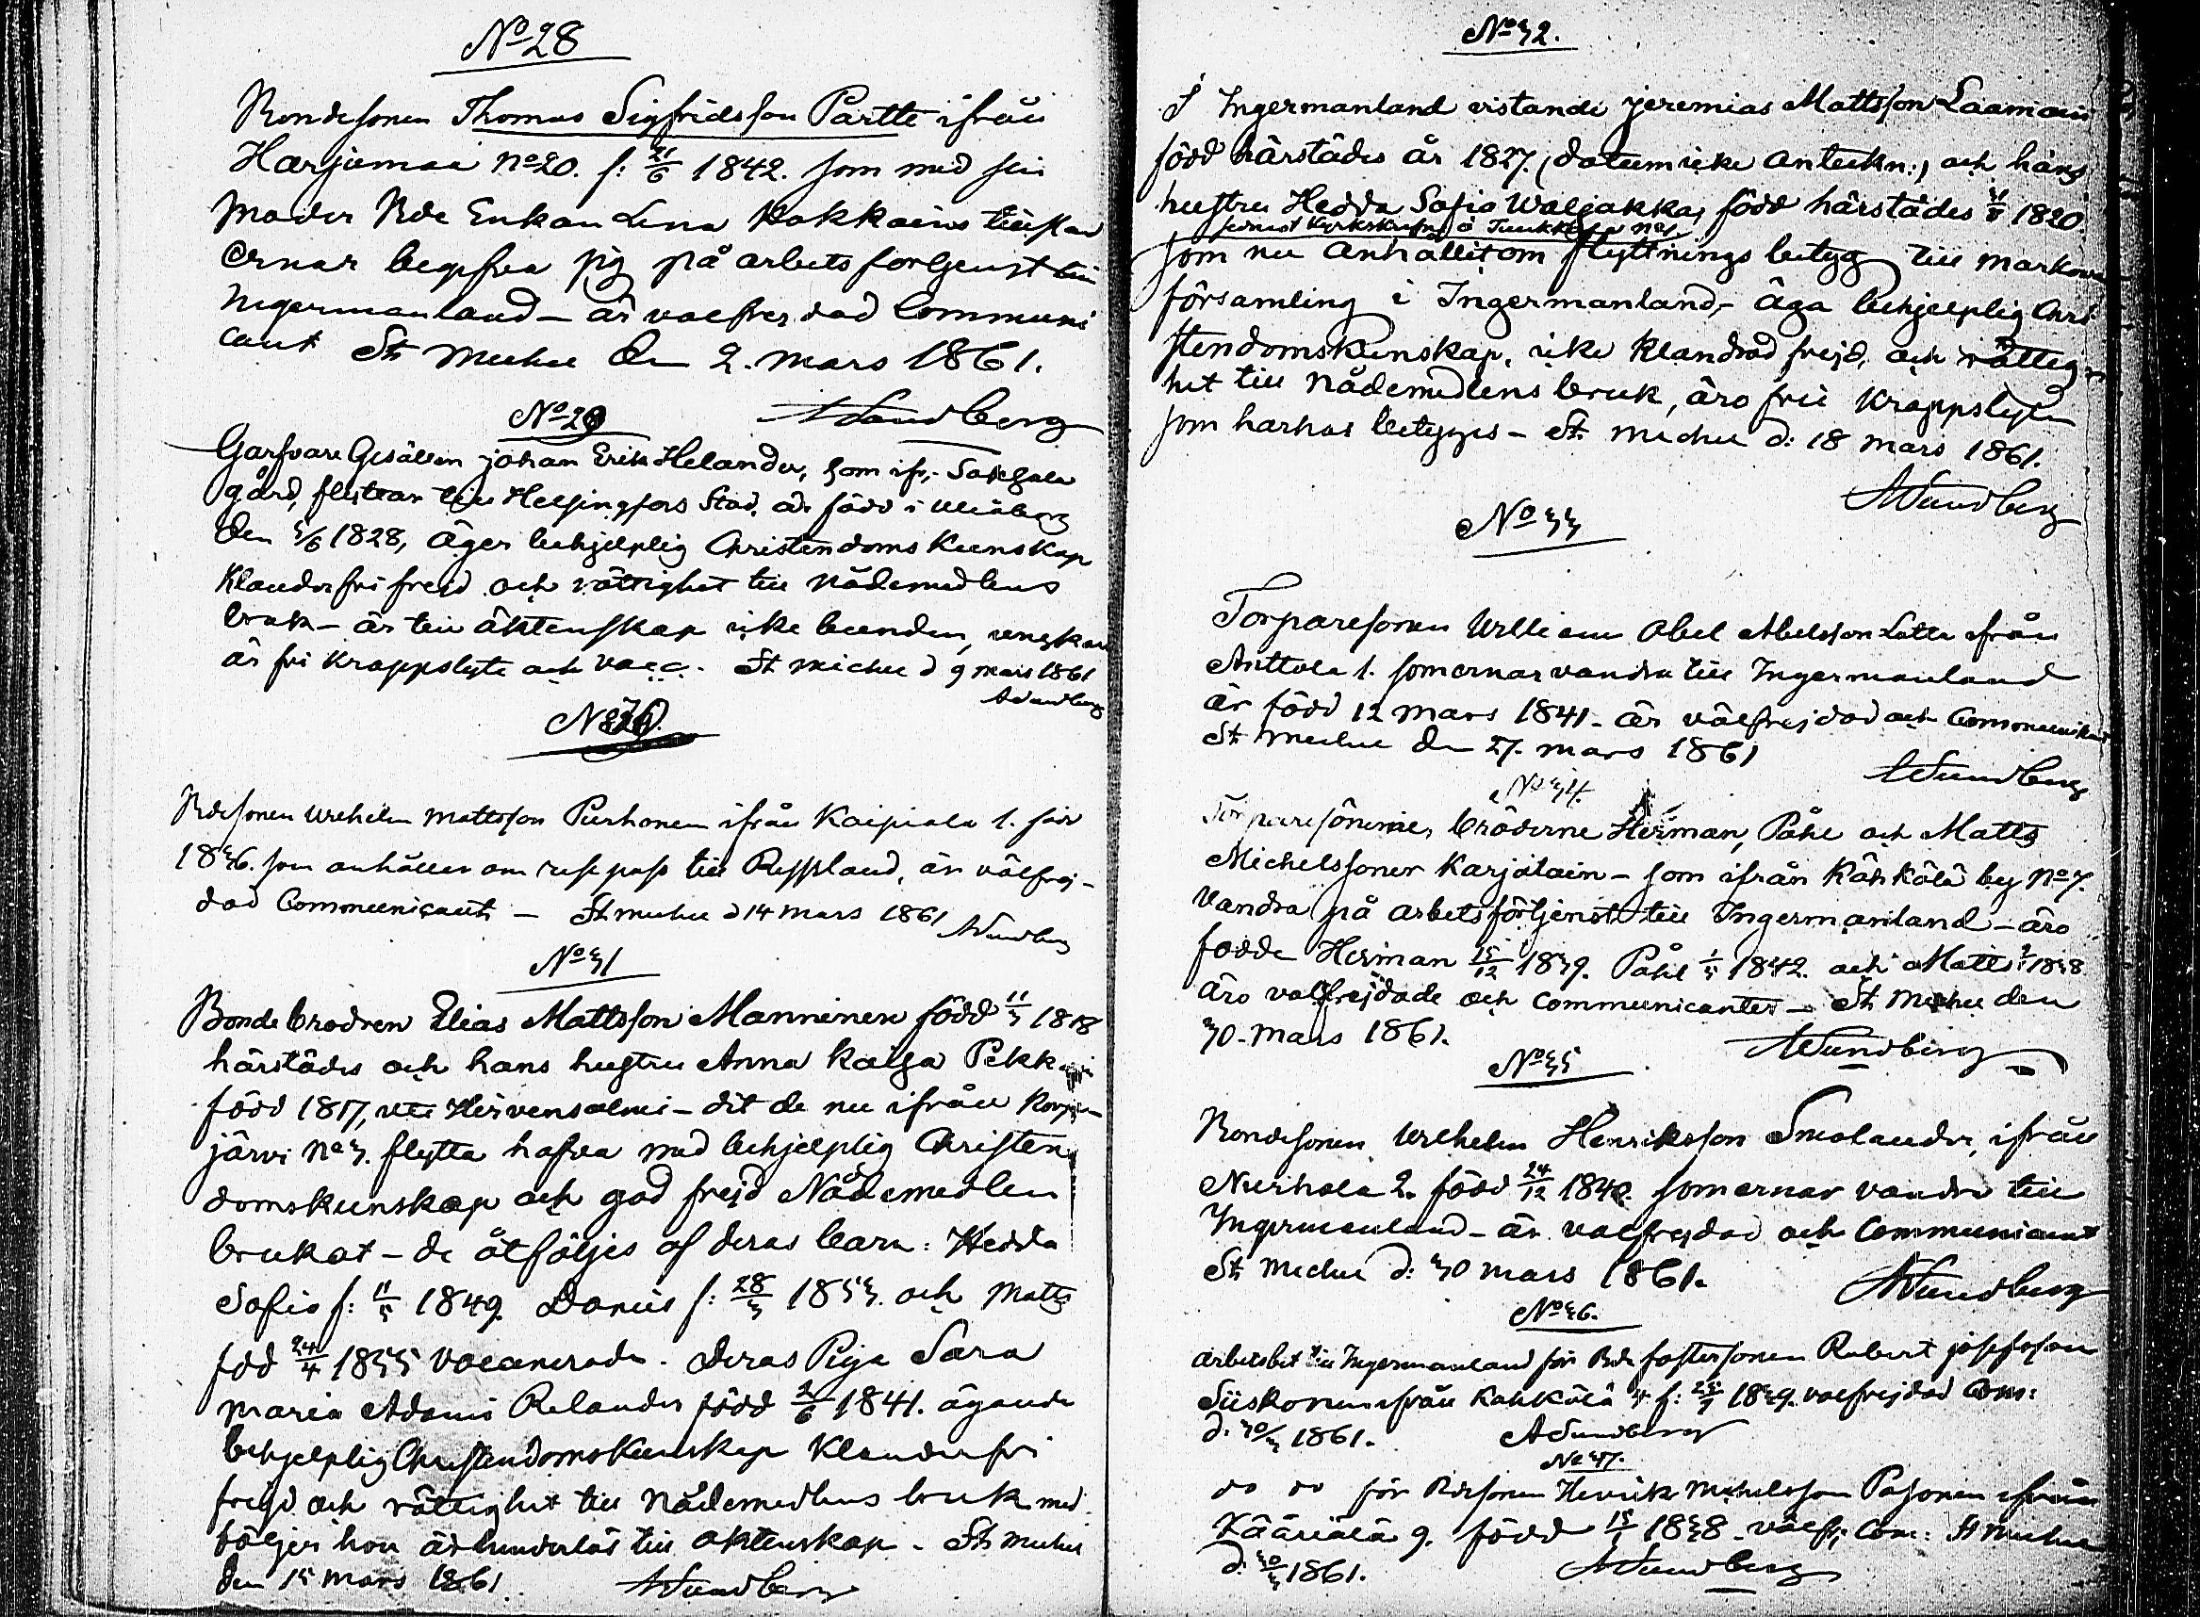 No 28
Bondesonen Thomas Sigfridsson Partte ifrån
Harjumaa No 20. f: 21/6 1842. som med sin
moder Bde Enkan Lena Kokkoins tillstånd
ernar begifva sig på arbetsfortjenst till
Ingermanland – är valfrejdad Communi
cant St Michel den 2. Mars 1861.
A Sundberg
No 29
Garfvare Gesällen Johan Erik Helander, som ifr:
gård, flyttar till Helsingfors Stad, är född i Uleåborg
den 3/6 1828, äger behjelplig Christendoms Kunskap
Klanderfri frejd och rättighet till Nådemedlens
bruk – är till äktenskap icke bunden,
är fri Kroppslyte och vacc. St Michel d 9 mars 1861
A Sundberg
No 30.
Bdesonen Wilhelm Mattsson Purhonen ifrån Kaipiala 1. född
1836. som anhåller om respass till Ryssland, är välfrej-
dad Communicant – St Michel d 14 Mars 1861 A Sundberg
No 31
Bonde brodren Elias Mattsson Manninen född 11/3 1818
härstädes och hans hustru Anna Kaisa Pekk
född 1817, uti Hirvensalmi – dit de nu ifrån Korpi-
järvi No 3. flytta hafva med behjelplig Christen
domskunskap och god frejd Nådemedlen
brukat – de åtföljes af deras barn: Hedda
Sofia f: 11/5 1849. Darius f: 28/3 1853. och Matts
föd 24/4 1855 vaccinerade. Deras Piga Sara
Maria Adami Relander född 2/6 1841. ägande
behjelplig Christendoms Kunskap Klanderfri
frejd och rättighet till Nådemedlens bruk med
följer hon är hinderlös till äktenskap. St Michel
den 15 Mars 1861. A Sundberg
No 32.
I Ingermanland vistande Jeremias Mattsson Laamain
född härstädes år 1827. (datum icke anteckn:) och hans
hustru Hedda Sofia Waljakka, född härstädes 1820
No 1.
som nu anhållit om flyttnings betyg till Markova
församling i Ingermanland, äga behjelplig Chri
stendomskunskap, icke klandrad frejd, och rättig
het till nådemedlens bruk, äro frie Kroppslyten
som härhos betygges – St Michel d: 18 mars 1861.
A Sundberg
No 33
Torparesonen William Abel Abelsson Latte ifrån
Anttola 1. som ernar vandra till Ingermanland
är född 12 mars 1841 – är välfrejdad och Communikant
St Michel den 27. mars 1861
A Sundberg
No 34.
Torparesönerne, bröderne Herman, Påhl och Matts
Michelssoner Karjalain – som ifrån Kähkölä by No 7.
vandra på arbetsförtjenst till Ingermanland – äro
födde Herman 15/12 1839. Påhl 1/5 1842. och Matts 1838
äro valfrejdade och communicanter – St Michel den
30. Mars 1861.
A Sundberg
No 35
Bondesonen Wilhelm Henriksson Smolander, ifrån
Nurhola 2. född 24/12 1840. som ernar vandra till
Ingermanland – är valfrejdad och Communicant
St Michel d: 30 Mars 1861.
A Sundberg
No 36.
Arbetsbet till Ingermanland för Bde fostersonen Robert Josefsson
Siiskonen ifrån Kähkölä 4 f: 1839. valfrejdad Com:
d. 30/3 1861. A Sundberg
No 37.
do do för Bdesonen Henrik Michelsson Pasonen ifrån
Kääriälä 9. född 15/1 1838 – välfr: Com: St Michel
d. 30/3 1861. A Sundberg